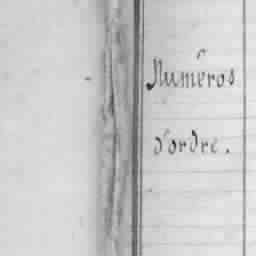 Numéros
d'ordre.